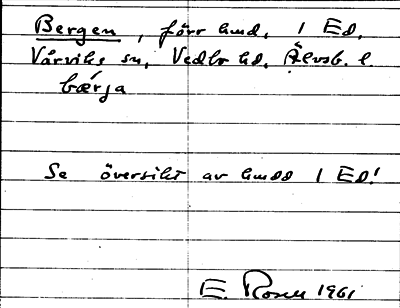 Bergen, förr hmd, i Ed,
Vårviks sn, Vedbo hd, Älvsb. l.
bærja
Se översikt av hmdd i Ed!
E. Rosell 1961